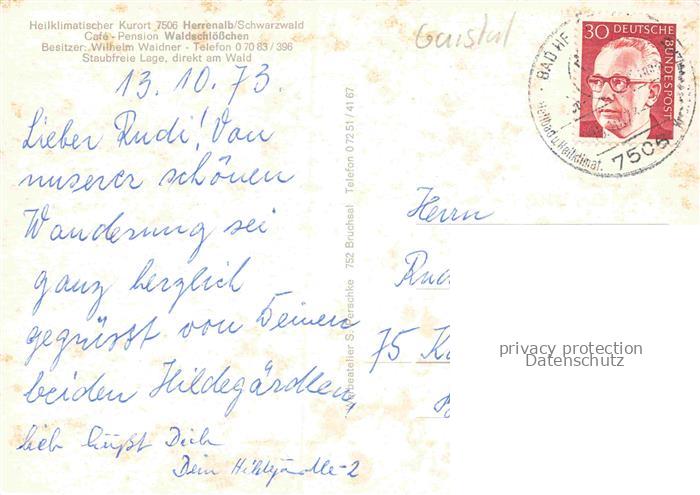 Heilklimatischer Kurort 7506 Herrenalb/Schwarzwald
Café - Pension Waldschlößchen
Besitzer: Wilhelm Waidner - Telefon 0 70 83 / 396
Staubfreie Lage, direkt am Wald
Gaistal
13.10.73.
Lieber Rudi! Von
unserer schönen
Wanderung sei
ganz herzlich
gegrüsst von Deinen
beiden Hildegärdlen,
lieb küßt Dich
Dein
752 Bruchsal Telefon 0 72 51 / 41 67
30 DEUTSCHE
BUNDESPOST
BAD HE
Heilbad u. Heilklimat.
7506
Herrn
Rud
75 Ka
privacy protection
Datenschutz